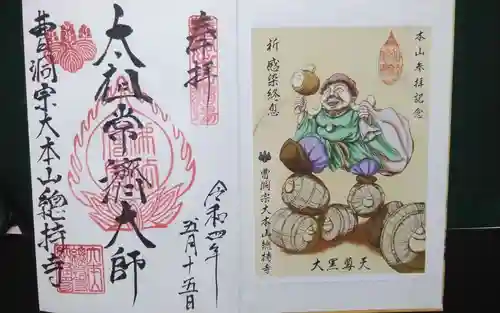 奉拝
太祖常濟大師
曹洞宗大本山總持寺
令和四年
五月十五日
本山参拝記念
祈感染終息
曹洞宗大本山總持寺
大黒尊天